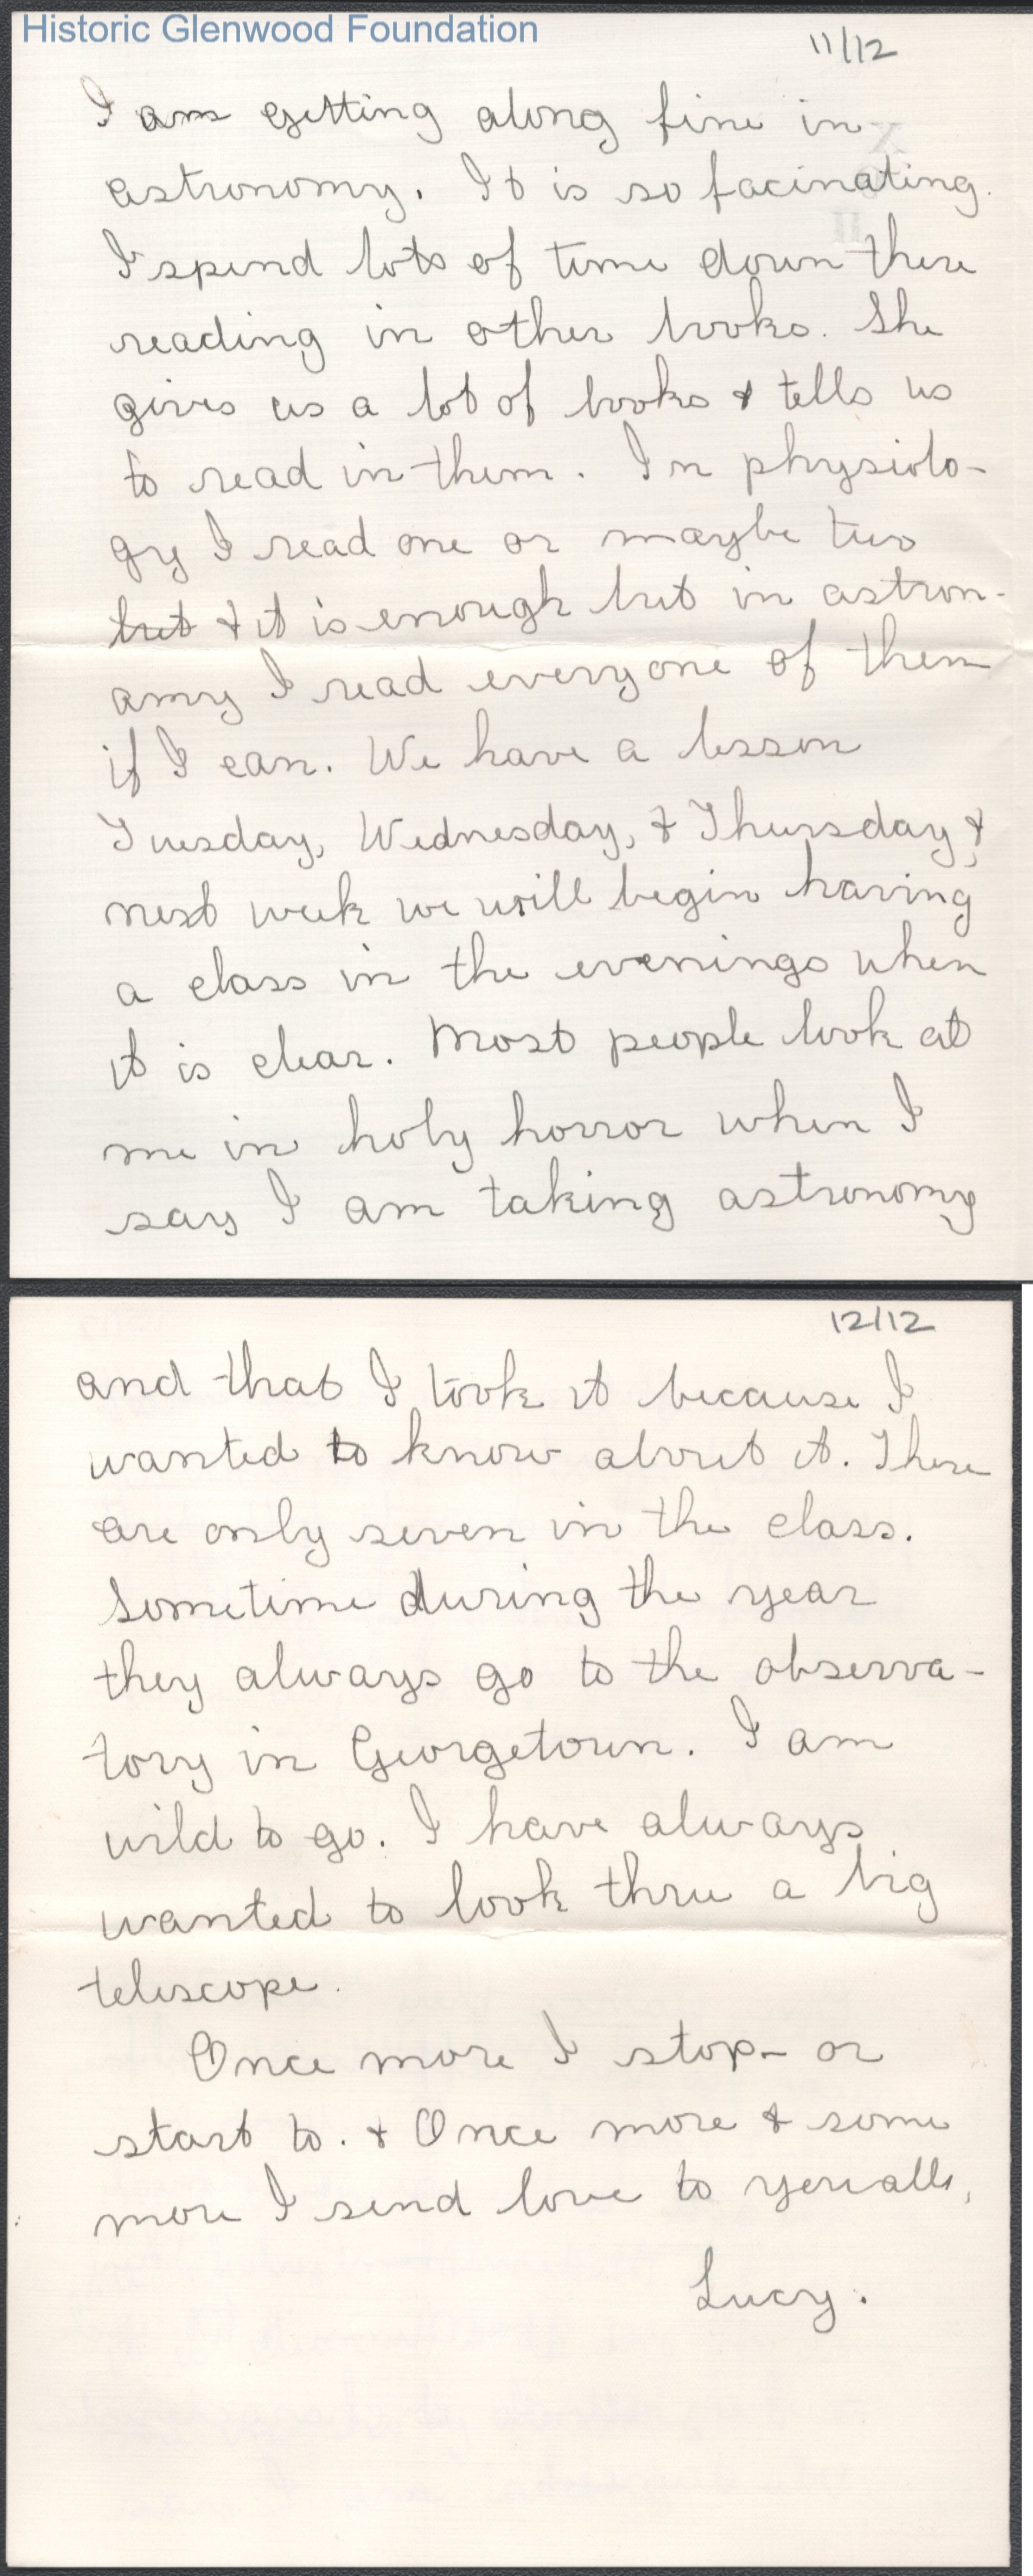 Historic Glenwood Foundation
11/12
I am getting along fine in
astronomy. It is so facinating.
I spend lots of time down there
reading in other books. She
gives us a lot of books & tells us
to read in them. In physiolo-
gy I read one or maybe two
but & it is enough but in astron-
amy I read everyone of them
if I can. We have a lesson
Tuesday, Wednesday, & Thursday &
next week we will begin having
a class in the evenings when
it is clear. Most people look at
me in holy horror when I
say I am taking astronomy
12/12
and that I took it because I
wanted to know about it. There
are only seven in the class.
Sometime during the year
they always go to the observa-
tory in Georgetown. I am
wild to go. I have always
wanted to look thru a big
telescope.
Once more I stop- or
start to. & Once more & some
more I send love to
Lucy.